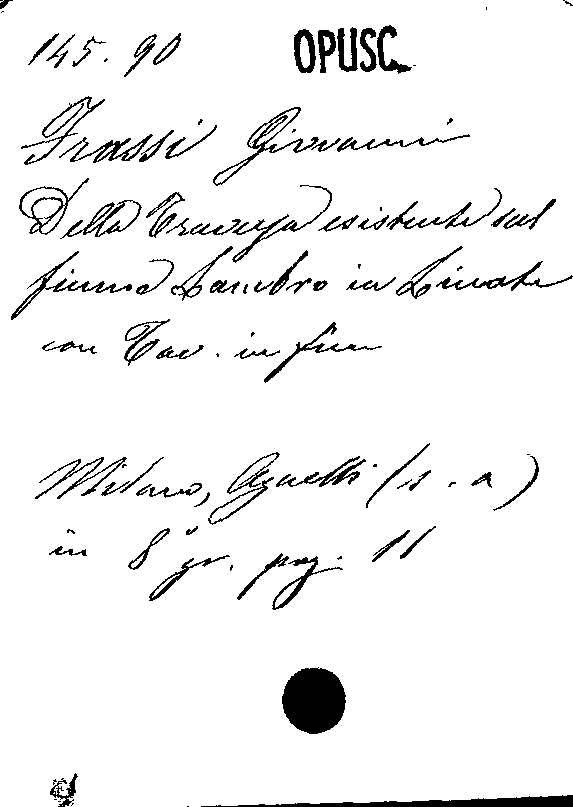 145.90 OPUSC.
Frassi Giovanni
Della Traversa esistente sul
fiume Lambro in Linate
con Tav. in fine
Milano, Agnelli (s. a)
in 8° gr. pag. 11